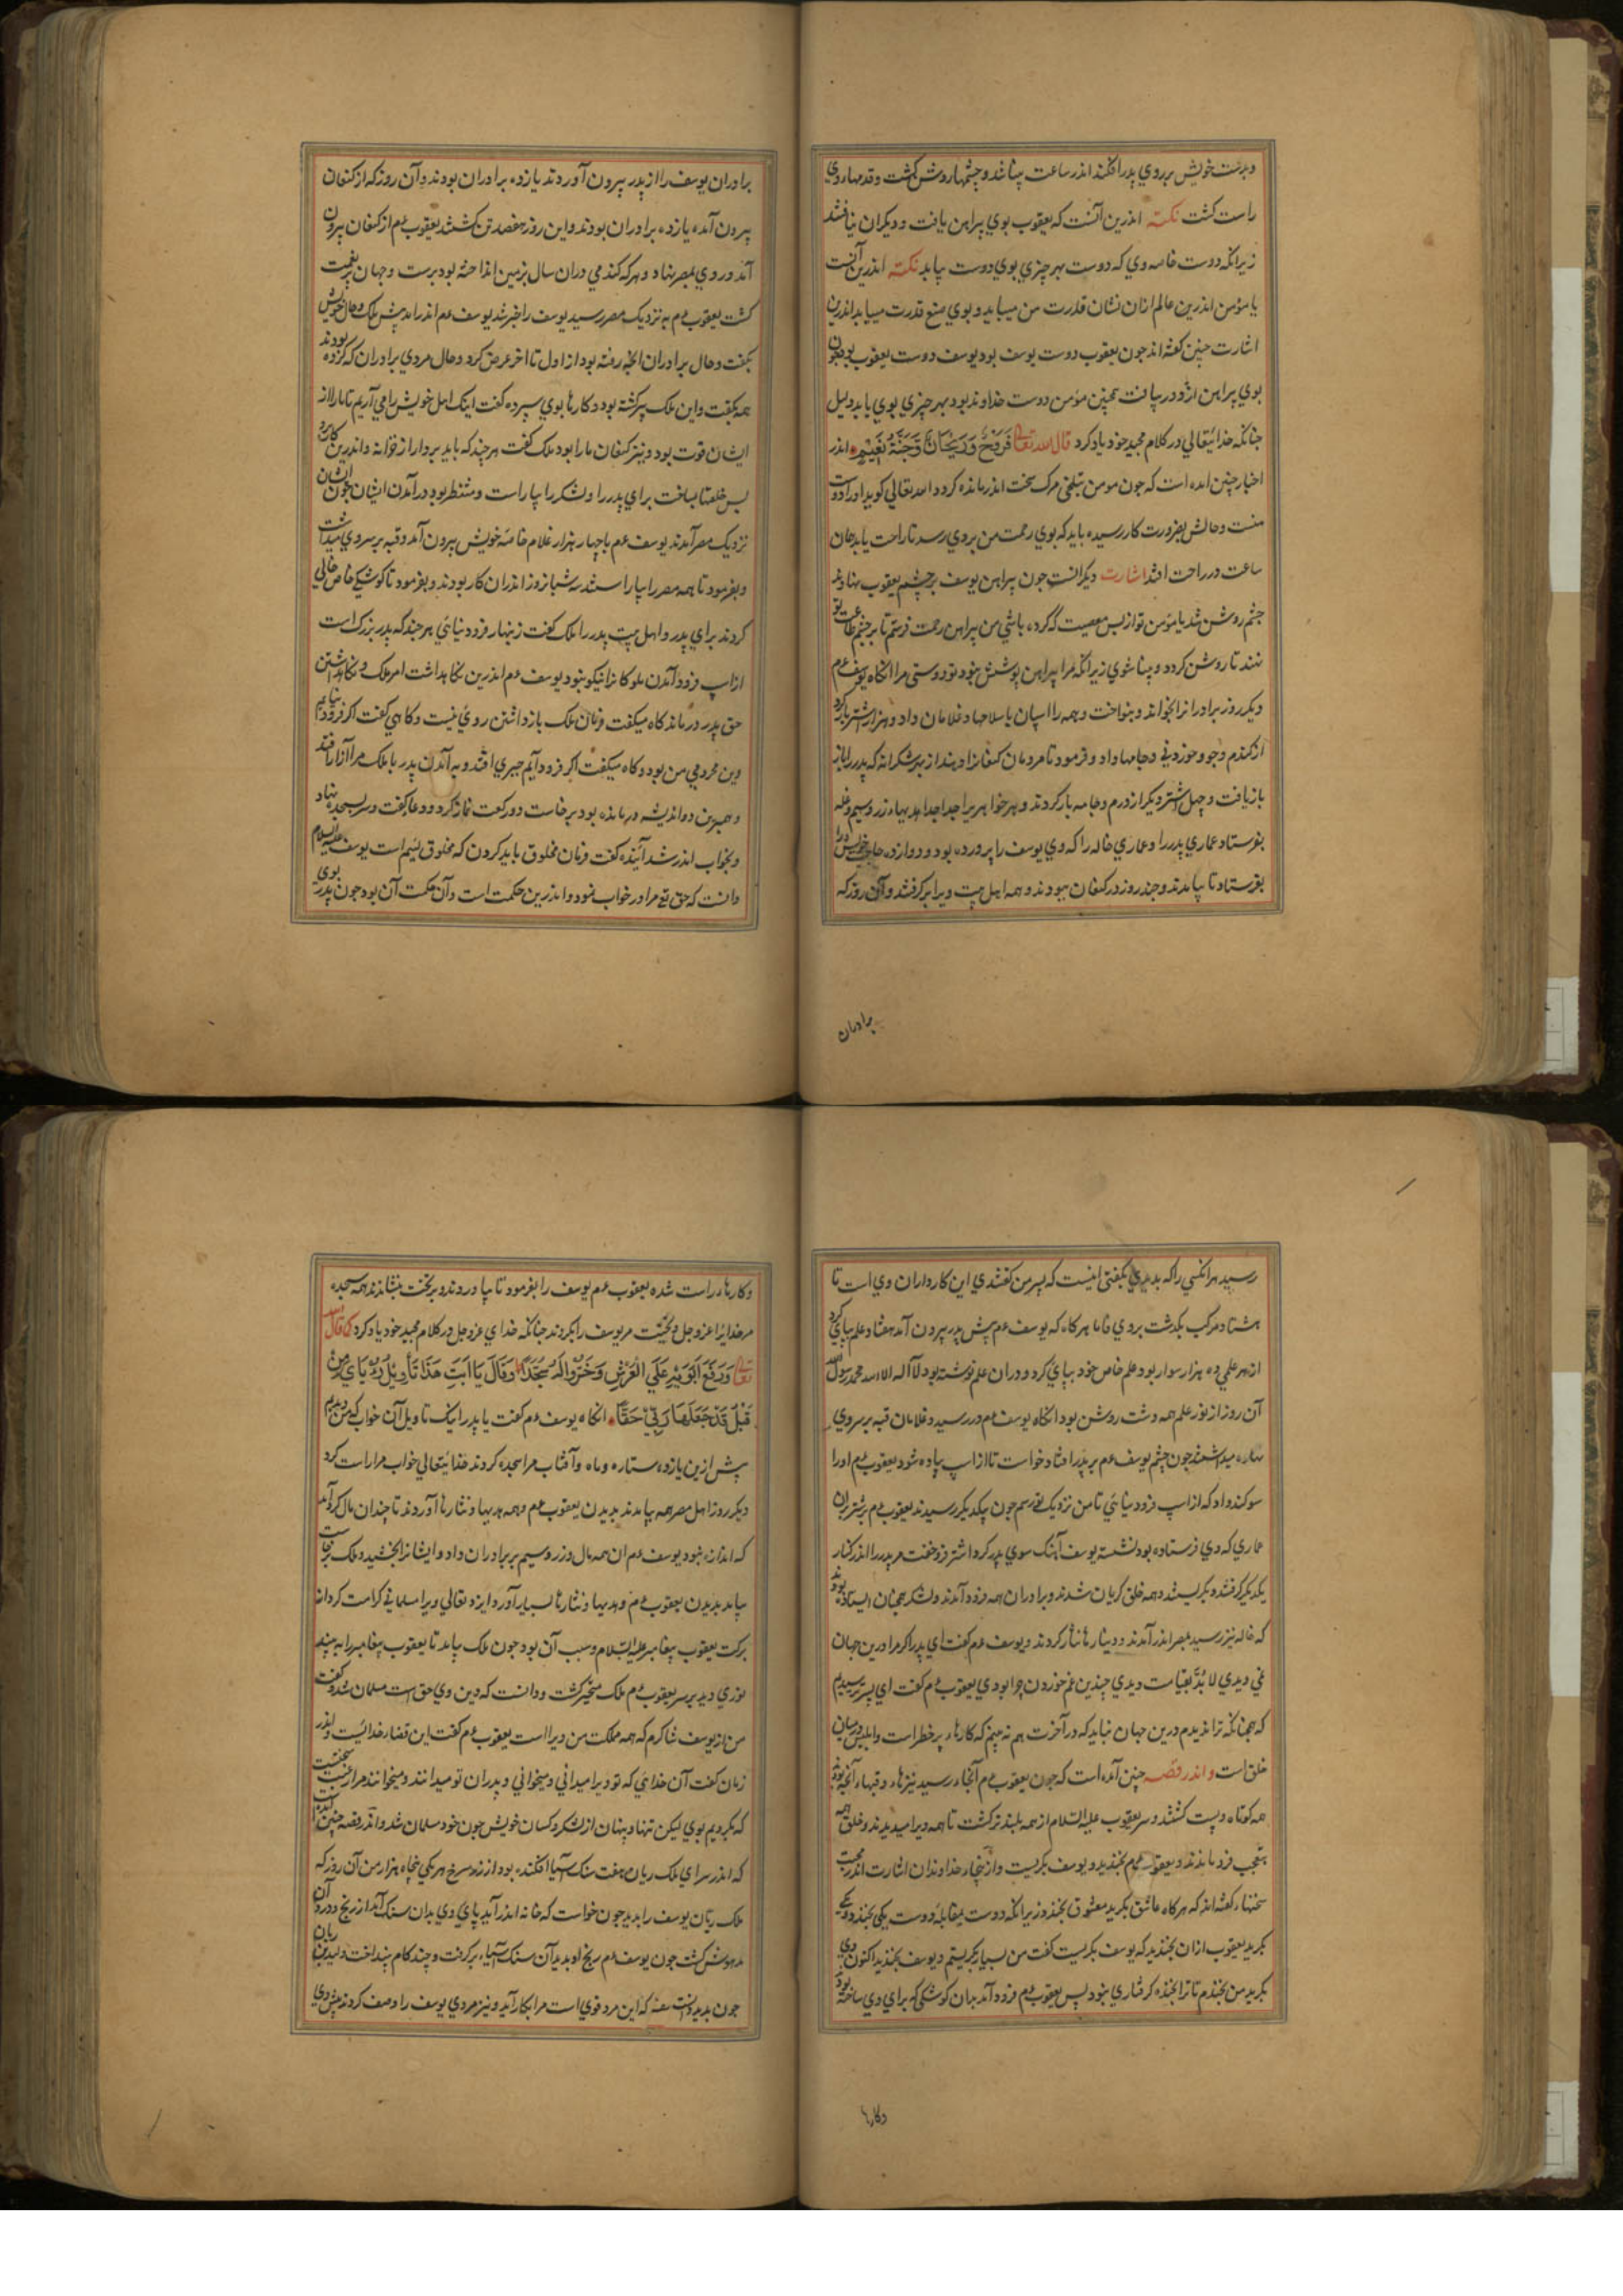 و بدست خویش بر روی پدر افکند اندر ساعت بینا شد و چشمها روشن گشت و قدمها روی
راست گشت نکته اندرین آنست که یعقوب بوی پیراهن یافت و دیکران نیافتند
زیرانکه دوست خاصه وی که دوست بهر چیزی بوی دوست بیابد نکته اندرین آنست
یا مؤمن اندرین عالم از ان نشان قدرت من میابید و بوی صنع قدرت میابید اندرین
اشارت چنین کفته اند جون یعقوب دوست یوسف بود یوسف دوست یعقوب بود جون
بوی پیراهن از و دریافت همچنین مؤمن دوست خداوند بود بهر چیزی بوی یابد دلیل
جنانکه خدایتعالی در کلام مجید خود یاد کرد قال الله تعالی فَرَوْحٌ وَرَیْحَانٌ وَجَنَّةُ نَعِیْمٍ اندر
اخبار چنین امده است که جون مومن بتلخی مرک سخت اندر مانده کردد الله تعالی کوید او را دوست
منست و حالش بضرورت کار رسیده باید که بوی رحمت من بر وی رسد تا راحت یابد همان
ساعت در راحت افتد اشارت دیکر انست جون پیراهن یوسف بر چشم یعقوب نهادند
چشم روشن شد یا مؤمن تو از بس معصیت که کرده باشی من پیراهن رحمت فرستم تا بر چشم طاعت تو
نهند تا روشن کردد و بینا شوی زیرانکه مرا پیراهن پوشش بود تو دوستی مرا انکاه یوسف عم
دیکر روز برادرانرا بخواند و بنواخت و همه را اسپان با سلاحها و غلامان داد و هزار اشتر بار کرد
از کندم و جو و خوردنی و جامها داد و فرمود تا مردمان کنعانرا دهند از بهر شکرانه که پدر را باز
بازیافت و چهل اشتر دیکر از درم و جامه بار کردند و هر خواهریرا جدا جدا هدیهاء زر و سیم و غله
بفرستاد عماری پدر را و عماری خاله را که وی یوسف را پرورده بود و دوازده حاجب خویش را
بفرستاد تا بیامدند و چند روز در کنعان ببودند و همه اهل بیت ویرا برکرفتند و آن روز که
برادران
برادران یوسف را از پدر بیرون آوردند یازده برادران بودند و آن روز که از کنعان
بیرون آمده یازده برادران بودند و این روز هفصد تن کشتند یعقوب عم از کنعان بیرون
آمد و روی بمصر نهاد و هر که کندمی دران سال بزمین انداخته بود برست و جهان پرنعمت
کشت یعقوب عم به نزدیک مصر رسید یوسف را خبر شد یوسف عم اندر امد پیش ملک و حال خویش
بکفت و حال برادران انچه رفته بود از اول تا اخر عرض کرد و حال مردی برادران که کرده بودند
همه بکفت و این ملک پیر کشته بود و کارها بوی سپرده کفت اینک اهل خویش را می آریم تا ما را از
ایشان قوت بود و نیز کنعان ما را بود ملک کفت هر چند که باید بردار از خزانه و اندرین کار برد
پس خلعتها بساخت برای پدر را و لشکر را بیاراست و منتظر بود در آمدن ایشان جون ایشان
نزدیک مصر آمدند یوسف عم با چهار هزار غلام خاصّه خویش بیرون آمد و قبه بر سر وی میداشت
و بفرمود تا همه مصر را بیاراستند سه شبانروز اندران کار بودند و بفرمود تا کوشکی خاص خالی
کردند برای پدر و اهل بیت پدر را ملک کفت زینهار فرود نیائی هر چند که پدر بزرک است
از اسپ فرود آمدن ملوکانرا نیکو نبود یوسف عم اندرین نکاهداشت امر ملک و نکاهداشتن
حق پدر درماند کاه میکفت فرمان ملک بازداشتن روی نیست و کاهی کفت اکر فرود نیایم
وین محرومی من بود و کاه میکفت اکر فرود آیم چیزی افتد و به آمدن پدر با ملک مرا آزار افتد
و همبرین دو اندیشه درمانده بود برخاست دو رکعت نماز کرد و دعا کفت و سر بسجده نهاد
و بخواب اندر شد آینده کفت فرمان مخلوق باید کردن که مخلوق لئیم است یوسف علیه السلام
دانست که حق تع مرا در خواب نمود و اندرین حکمت است و آن حکمت آن بود جون پدر بوی
رسید هر انکسی را که بدیدی بکفتی اینست که پسر من کفتندی این کارداران وی است تا
هشتاد مرکب بکذشت بروی فاما هرکاه که یوسف عم پیش پدر بیرون آمد هفتاد علم بپای کرد
از هر علمی ده هزار سوار بود علم خاص خود بپای کرد و دران علم نوشته بود لا اله الا الله محمد رسول الله
آن روز از نور علم همه دشت روشن بود انکاه یوسف عم در رسید و غلامان قبه بر سر وی
نهاده میداشتند جون چشم یوسف عم بر پدر افتاد خواست تا از اسپ پیاده شود یعقوب عم او را
سوکند داد که از اسپ فرود نیائی تا من نزدیک تو رسم جون بیکدیکر رسیدند یعقوب عم بر شتر بران
عماری که وی فرستاده بود نشسته یوسف آهنک سوی پدر کرد اشتر فروخفت مر پدر را اندر کنار
یکدیکر کرفتند و بکریستند و همه خلق کریان شدند و برادران همه فرود آمدند و لشکر همچنان ایستاده بودند
که خاله نیز رسید بمصر اندر آمدند و دینارها نثار کردند و یوسف عم کفت ای پدر اکر مرا درین جهان
نمی دیدی لا بُدّ بقیامت دیدی چندین غم خوردن چرا بودی یعقوب عم کفت ای پسر ترسیدم
که همچنانکه ترا ندیدم درین جهان نباید که در آخرت هم نه بینم که کارهاء پر خطر است و ابلیس درمیان
خلق است واندر قصّه چنین آمده است که جون یعقوب عم آنجا رسید نیزهاء و قبهاء آنچه بود
همه کوتاه و پست کشتند و سر یعقوب علیه السّلام از همه بلندتر کشت تا همه ویرا میدیدند و خلق همه
بتعجب فرو ماندند و یعقوب عم بخندید و یوسف بکریست و از ینجاء خداوندان اشارت اندر محبت
سخنهاء کفته اند که هرکاه عاشق بکرید معشوق بخندد زیرانکه دوست بمقابلهٔ دوست یکی بخندد و یکی
بکرید یعقوب ازان بخندید که یوسف بکریست کفت من بسیار بکریستم و یوسف بخندید اکنون وی
بکرید من بخندم تا ترا بخنده کرفتاری نبود پس یعقوب عم فرود آمد بدان کوشکی که برای وی ساخته بود
وکارها
وکارهاء راست شده یعقوب عم یوسف را بفرمود تا بیاوردند و بر تخت بنشاندند همه سجده
مر خدایرا عزوجل و تحیّت مر یوسف را بکردند جنانکه خدای عزوجل در کلام مجید خود یاد کرد که قال الله
تعالی وَرَفَعَ اَبَوَیْهِ عَلَی الْعَرْشِ وَخَرُّوا لَهُ سُجَّدًا وَقَالَ یَا اَبَتِ هَذَا تَأوِیْلُ رُؤیَایَ مِنْ
قَبْلُ قَدْ جَعَلَهَا رَبِّیْ حَقًّا انکاه یوسف عم کفت یا پدر اینک تاویل آن خواب که من دیدم
پیش ازین یازده ستاره و ماه و آفتاب مرا سجده کردند خدایتعالی خواب مرا راست کرد
دیکر روز اهل مصر همه بیامدند بدیدن یعقوب عم و همه هدیها و نثارها آوردند تا چندان مال کرد آمد
که اندازه نبود یوسف عم ان همه مال و زر و سیم بر برادران داد و ایشانرا بخشید و ملک برخاست
بیامد بدیدن یعقوب عم و هدیها و نثارها بسیار آورد ایزد تعالی ویرا مسلمانی کرامت کرد از
برکت یعقوب پیغامبر علیه السّلام و سبب آن بود جون ملک بیامد تا یعقوب پیغامبر را به بیند
نوری دید بر سر یعقوب عم ملک متحیّر کشت و دانست که دین وی حق است مسلمان شد و کفت
من از یوسف شاکرم که همه مملکت من ویرا است یعقوب عم کفت این قضاء خدایست و اندر
زمان کفت آن خدای که تو ویرا میدانی و میخوانی و پدران تو میدانند و میخوانند مرا رغبت
که بکرویم بوی لیکن تنها و پنهان از لشکر و کسان خویش جون خود مسلمان شد و اندر قصه چنین آمده است
که اندر سرای ملک ریان هفت سنک آسیا افکنده بود از زر سرخ هر یکی پنجاه هزار من آن روز که
ملک ریّان یوسف را بدید جون خواست که خانه اندر آید پای وی بدان سنک آمد از رنج و درد آن
مدهوش کشت جون یوسف عم رنج او بدید آن سنک آسیاء برکرفت و چند کام بینداخت ولید بن ریان
جون بدید دانست که این مرد قوی است مرا بکار آید و نیز مردی یوسف را وصف کردند پیش وی